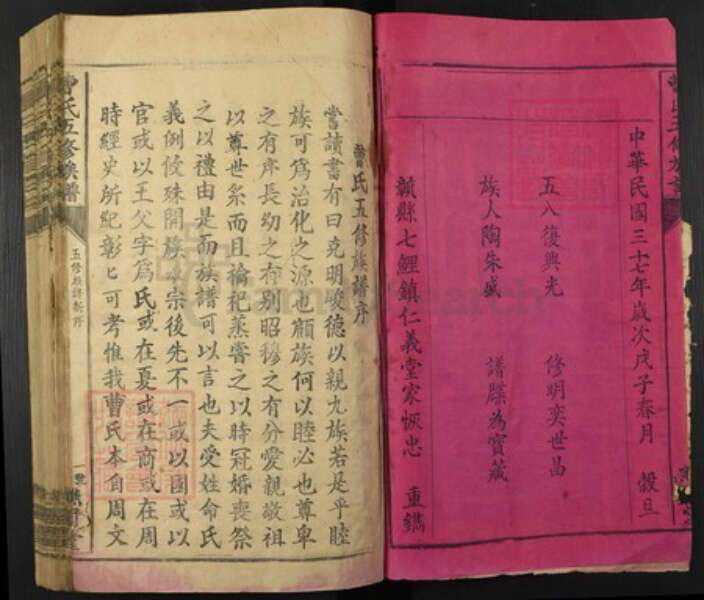 中華民國三十七年歲次戊子春月 穀旦
五八復興光 修明奕世昌
族人陶朱盛 譜牒為寶藏
贛縣七鯉鎮仁義堂家恢忠 重鐫
曹氏五修族譜序
嘗讀書有曰克明峻德以親九族若是乎睦
族可為治化之源也顧族何以睦必也尊卑
之有序長幼之有別昭穆之有分愛親敬祖
以尊世系而且禴祀蒸嘗之以時冠婚喪祭
之以禮由是而族譜可以言也夫受姓命氏
義例攸殊開族宗後先不一或以國或以
官或以王父字為氏或在夏或在商或在周
時經史所紀彰匕可考惟我曹氏本自周文
曹氏五修族譜
五修族譜新序